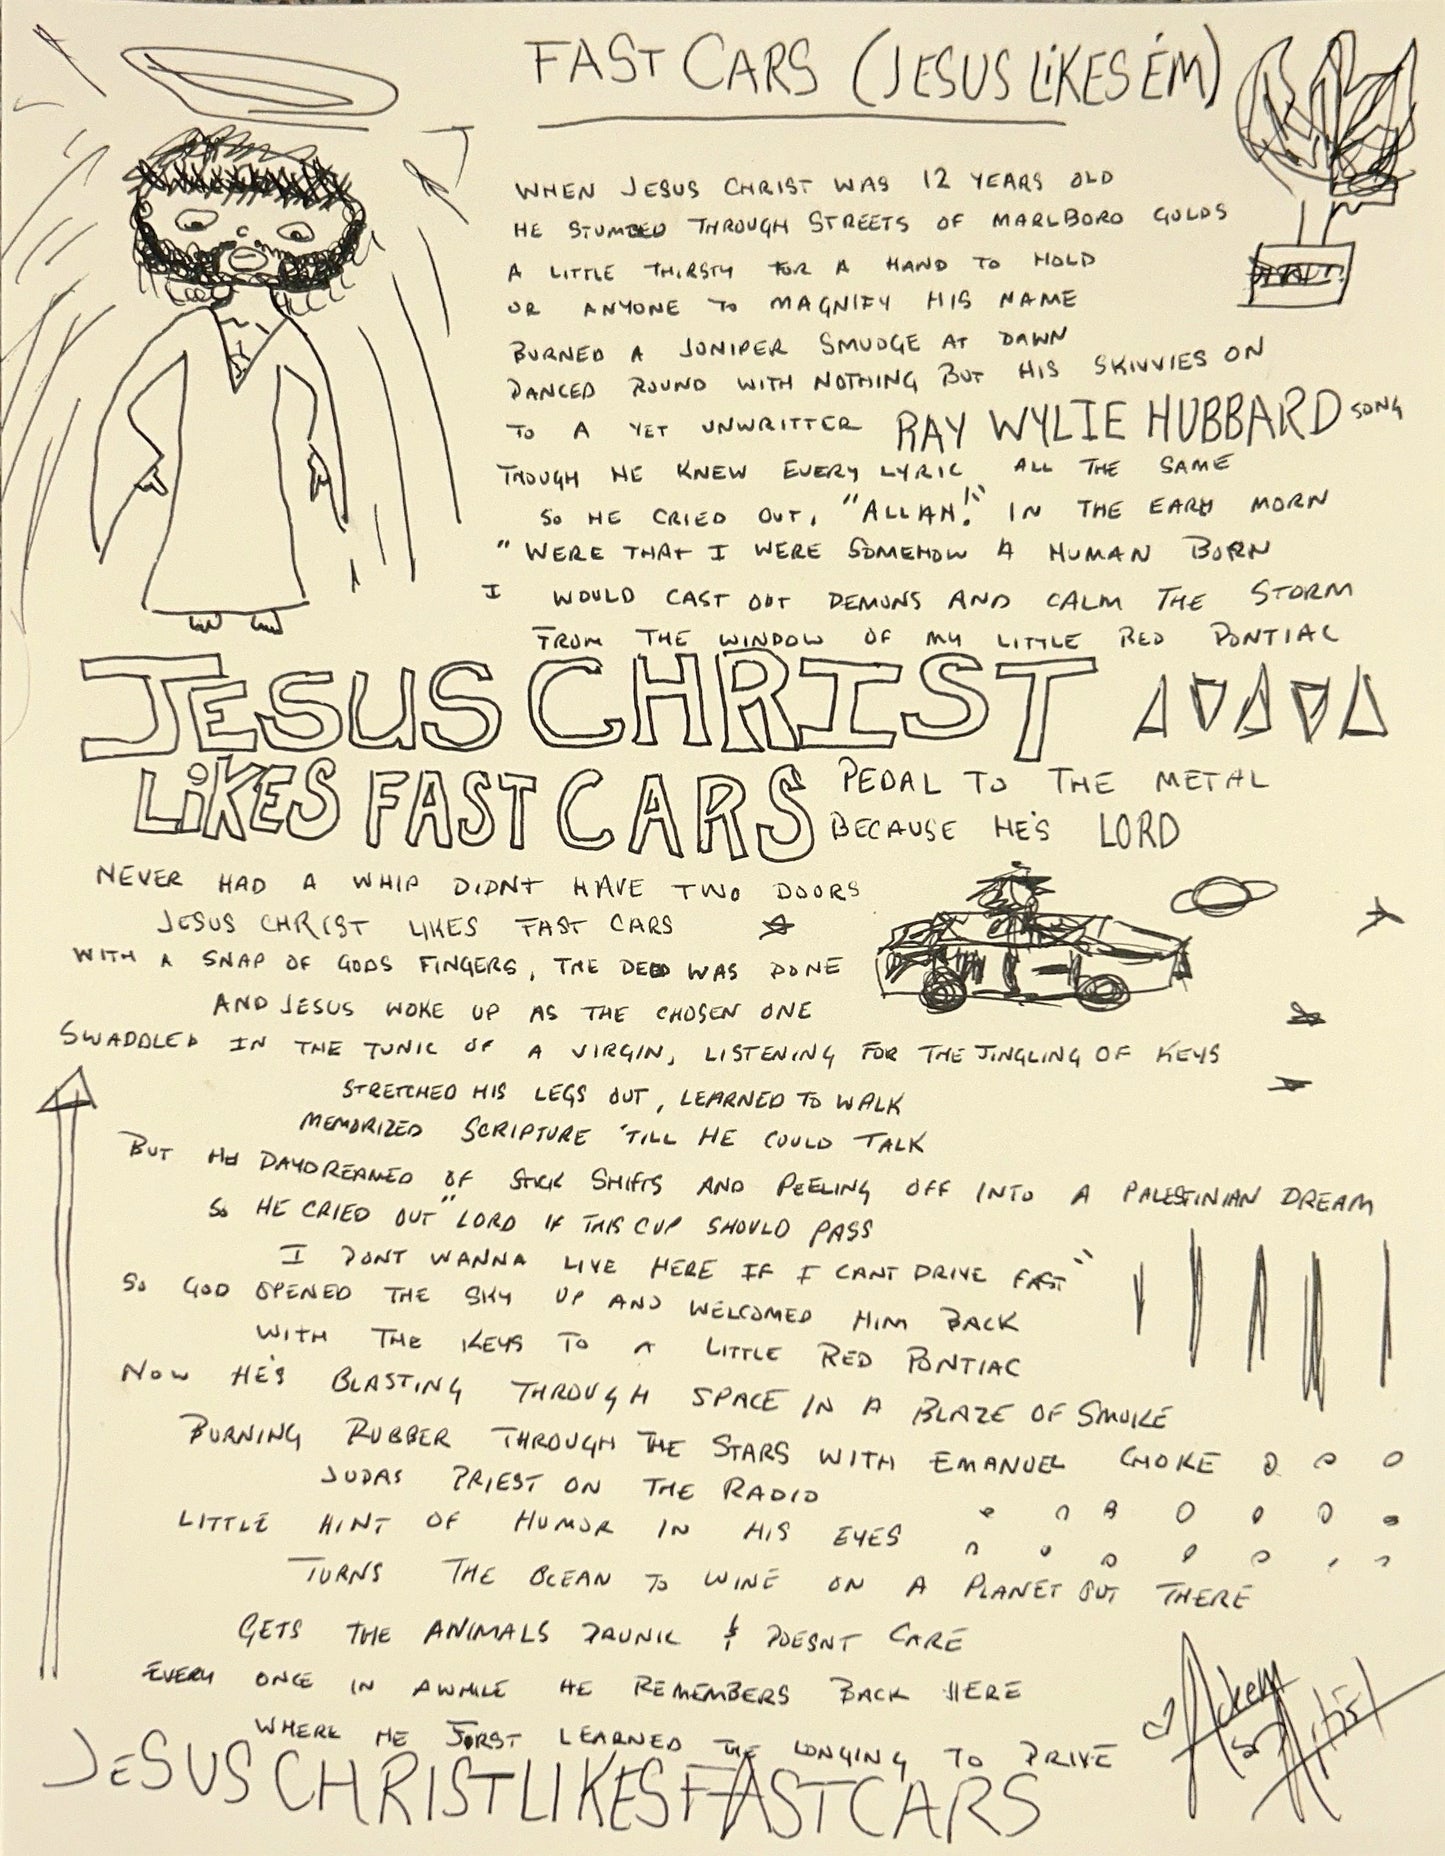 FAST CARS (JESUS LiKES ÉM)
WHEN JESUS CHRIST WAS 12 YEARS OLD
HE STUMBLED THROUGH STREETS OF MARLBORO GOLDS
A LITTLE THIRSTY FOR A HAND TO HOLD
OR ANYONE TO MAGNIFY HIS NAME
BURNED A JUNIPER SMUDGE AT DAWN
DANCED ROUND WITH NOTHING BUT HIS SKIVVIES ON
TO A YET UNWRITTEN RAY WYLIE HUBBARD SONG
THOUGH HE KNEW EVERY LYRIC ALL THE SAME
SO HE CRIED OUT, "ALLAH!" IN THE EARLY MORN
"WERE THAT I WERE SOMEHOW A HUMAN BORN
I WOULD CAST OUT DEMONS AND CALM THE STORM
FROM THE WINDOW OF MY LITTLE RED PONTIAC
JESUS CHRIST
LiKES FAST CARS PEDAL TO THE METAL
BECAUSE HE'S LORD
NEVER HAD A WHIP DIDNT HAVE TWO DOORS
JESUS CHRIST LIKES FAST CARS
WITH A SNAP OF GODS FINGERS, THE DEED WAS DONE
AND JESUS WOKE UP AS THE CHOSEN ONE
SWADDLED IN THE TUNIC OF A VIRGIN, LISTENING FOR THE JINGLING OF KEYS
STRETCHED HIS LEGS OUT, LEARNED TO WALK
MEMORIZED SCRIPTURE 'TILL HE COULD TALK
BUT HE DAYDREAMED OF STICK SHIFTS AND PEELING OFF INTO A PALESTINIAN DREAM
SO HE CRIED OUT "LORD IF THIS CUP SHOULD PASS
I DONT WANNA LIVE HERE IF I CANT DRIVE FAST"
SO GOD OPENED THE SKY UP AND WELCOMED HIM BACK
WITH THE KEYS TO A LITTLE RED PONTIAC
NOW HE'S BLASTING THROUGH SPACE IN A BLAZE OF SMOKE
BURNING RUBBER THROUGH THE STARS WITH EMANUEL CHOKE
JUDAS PRIEST ON THE RADIO
LITTLE HINT OF HUMOR IN HIS EYES
TURNS THE OCEAN TO WINE ON A PLANET OUT THERE
GETS THE ANIMALS DRUNK & DOESNT CARE
EVERY ONCE IN AWHILE HE REMEMBERS BACK HERE
WHERE HE FIRST LEARNED THE LONGING TO DRIVE
JESUS CHRIST LIKES FAST CARS